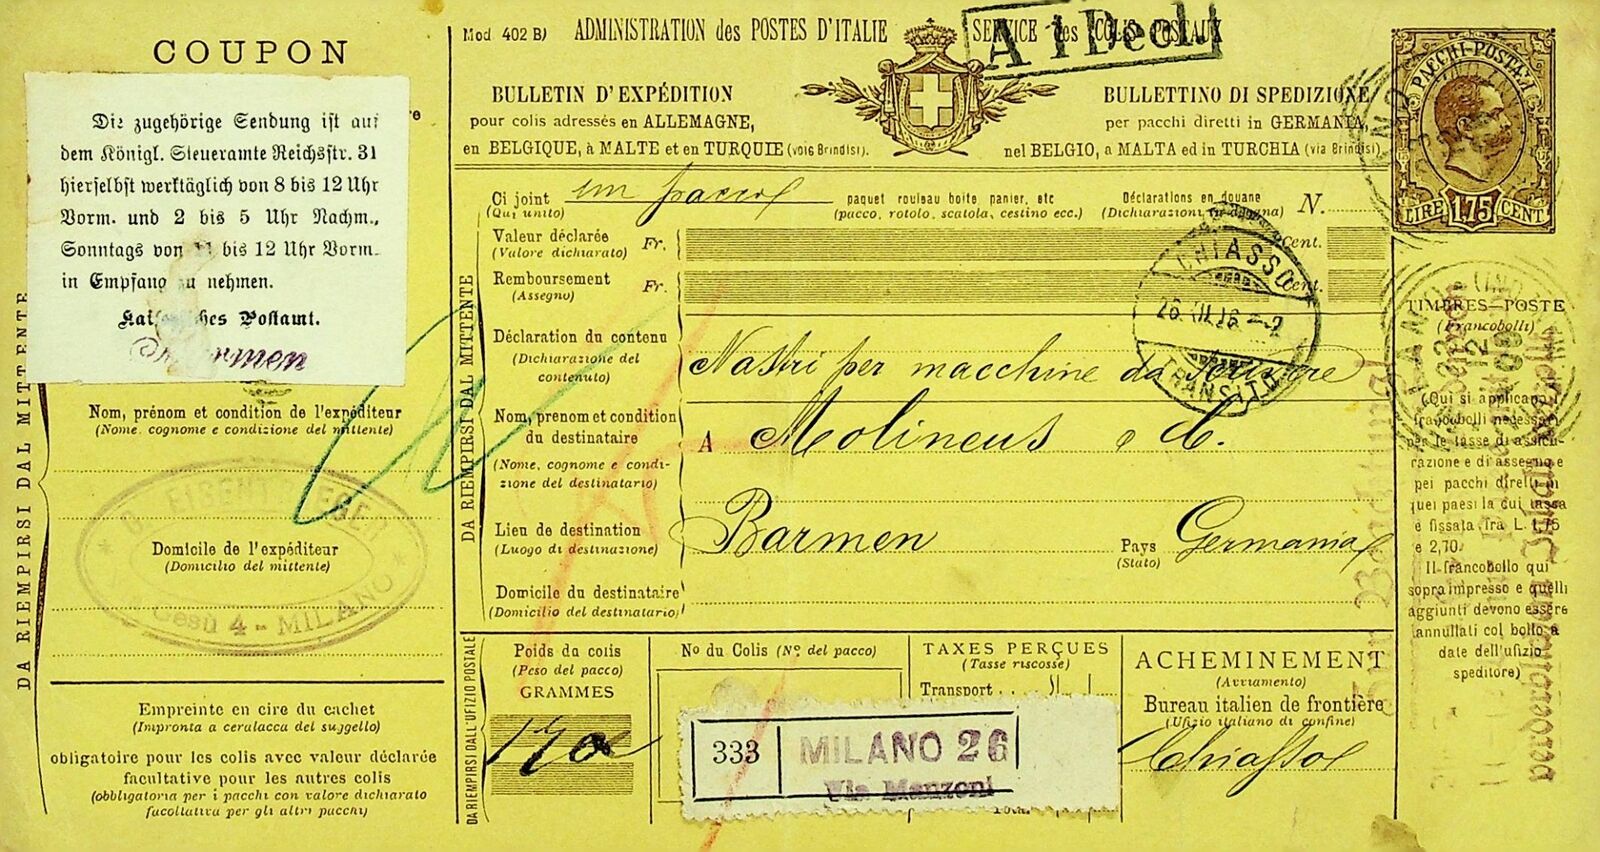 COUPON
Die zugehörige Sendung ist auf
dem Königl. Steueramte Reichsstr. 31
hierselbst werktäglich von 8 bis 12 Uhr
Vorm. und 2 bis 5 Uhr Nachm.,
Sonntags von 11 bis 12 Uhr Vorm.
in Empfang zu nehmen.
Postamt.
DA RIEMPIRSI DAL MITTENTE
Nom, prénom et condition de l'expéditeur
(Nome, cognome e condizione del mittente)
Domicile de l'expéditeur
(Domicilio del mittente)
Gesù 4 - MILANO
Empreinte en cire du cachet
(Impronta a ceralacca del suggello)
obligatoire pour les colis avec valeur déclarée
facultative pour les autres colis
(obbligatoria per i pacchi con valore dichiarato
facoltativa per gli altri pacchi)
Mod 402 B)
ADMINISTRATION des POSTES D'ITALIE
SERVICE des COLIS POSTAUX
A 1 Decl.
BULLETIN D'EXPÉDITION
pour colis adressés en ALLEMAGNE,
en BELGIQUE, à MALTE et en TURQUIE (voie Brindisi).
BULLETTINO DI SPEDIZIONE
per pacchi diretti in GERMANIA,
nel BELGIO, a MALTA ed in TURCHIA (via Brindisi)
DA RIEMPIRSI DAL MITTENTE
Ci joint un pacco paquet rouleau boite panier, etc
(Qui unito) (pacco, rotolo, scatola, cestino ecc.)
Déclarations en douane
(Dichiarazioni dogana) N.
Valeur déclarée Fr. Cent.
(Valore dichiarato)
Remboursement Fr. Cent.
(Assegno)
CHIASSO
26.XII.16 - 2
TRANSITO
Déclaration du contenu
(Dichiarazione del
contenuto)
Nastri per macchine da scrivere
Nom, prenom et condition
du destinataire
(Nome, cognome e condi-
zione del destinatario)
A Molineus e C.
Lieu de destination
(Luogo di destinazione)
Barmen
Pays
(Stato)
Germania
Domicile du destinataire
(Domicilio del destinatario)
DA RIEMPIRSI DALL'UFIZIO POSTALE
Poids du colis
(Peso del pacco)
GRAMMES
170
No du Colis (No del pacco)
TAXES PERÇUES
(Tasse riscosse)
Transport
333
MILANO 26
Via Manzoni
ACHEMINEMENT
(Avviamento)
Bureau italien de frontière
(Ufizio italiano di confine)
Chiasso
PACCHI-POSTALI
LIRE 1,75 CENT
TIMBRES-POSTE
(Francobolli)
(Qui si applicano i
francobolli necessari
per le tasse di assicu-
razione e di assegno e
pei pacchi diretti in
quei paesi la cui tassa
è fissata fra L. 1,75
e 2,70.
Il francobollo qui
sopra impresso e quelli
aggiunti devono essere
annullati col bollo a
date dell'ufizio
speditore)